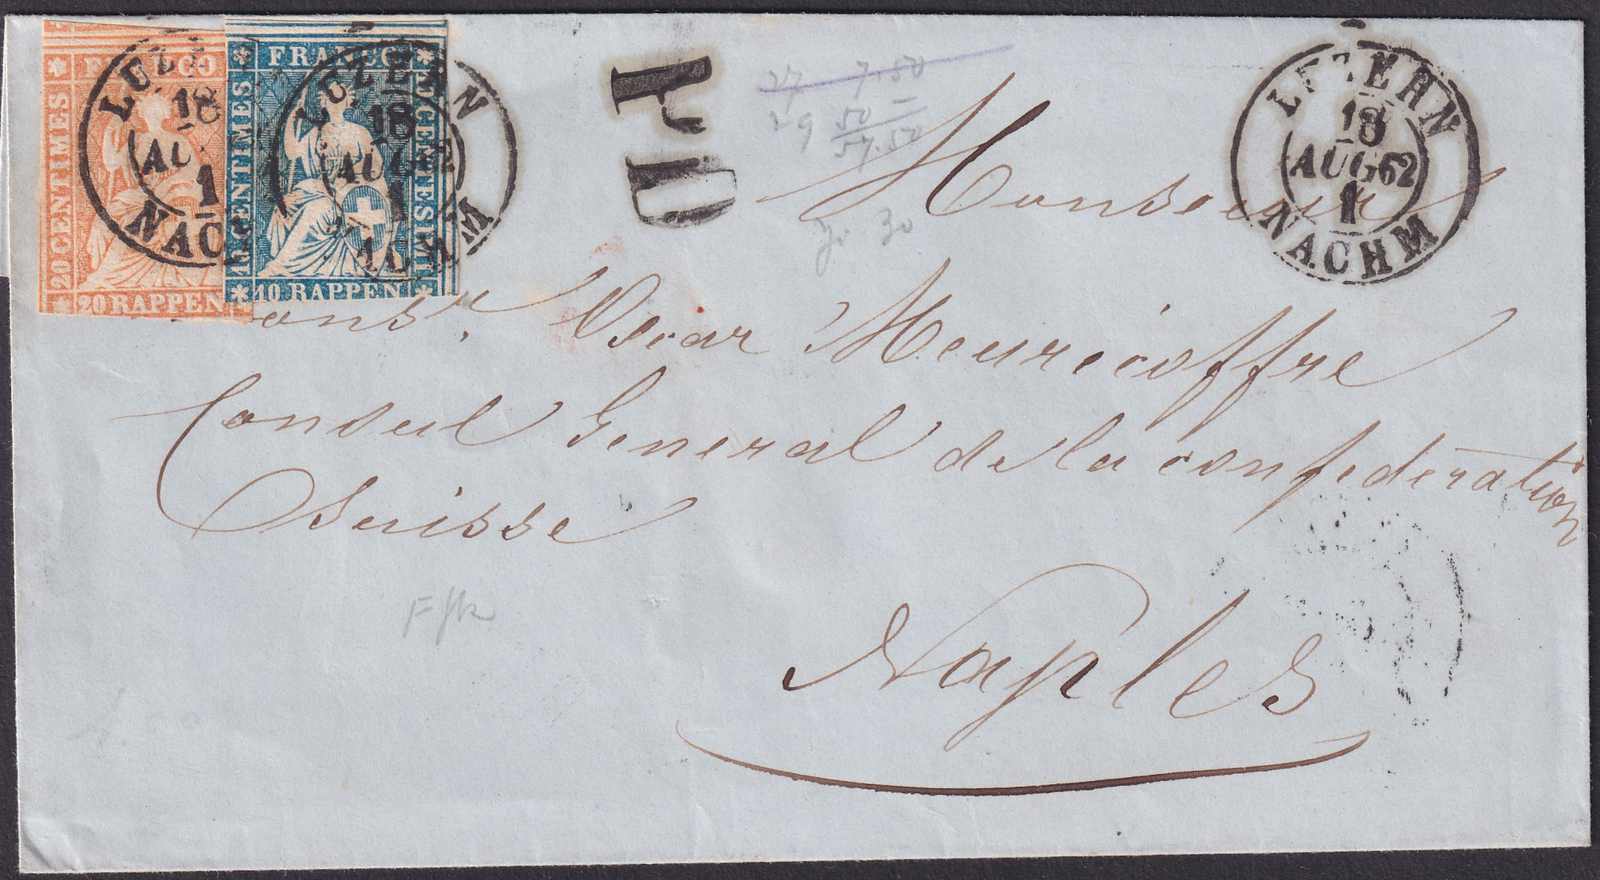 FRANCO
20 CENTIMES
20 RAPPEN
FRANCO
10 CENTIMES
10 CENTESIMI
10 RAPPEN
LUZERN
18
AUG 62
1
NACHM
PD
27 7.50
29 50
57.50
30
LUZERN
18
AUG 62
1
NACHM
Monsieur
Monsr. Oscar Meuricoffre
Consul General de la confederation
Suisse
Naples